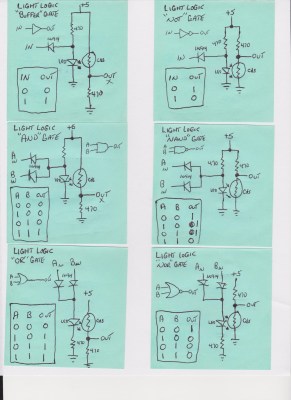 LIGHT LOGIC
"BUFFER" GATE
+5
IN OUT
470
IN
1N914
LED
CDS
OUT
X
470
IN OUT
0 0
1 1
LIGHT LOGIC
"NOT" GATE
+5
IN OUT
470
470
OUT
IN
1N914
LED
CDS
IN OUT
0 1
1 0
LIGHT LOGIC
"AND" GATE
+5
A
B
OUT
470
A
IN
B
IN
LED
CDS
OUT
X
470
A B OUT
0 0 0
0 1 0
1 0 0
1 1 1
LIGHT LOGIC
"NAND" GATE
+5
A
B
OUT
470
470
OUT
A
IN
B
IN
LED
CDS
A B OUT
0 0 1
0 1 1
1 0 1
1 1 0
LIGHT LOGIC
"OR" GATE
A IN B IN
1N914
A
B
OUT
+5
LED
CDS
OUT
470
470
A B OUT
0 0 0
0 1 1
1 0 1
1 1 1
LIGHT LOGIC
"NOR" GATE
A IN B IN
1N914
+5
A
B
OUT
470
OUT
LED
CDS
470
A B OUT
0 0 1
0 1 0
1 0 0
1 1 0